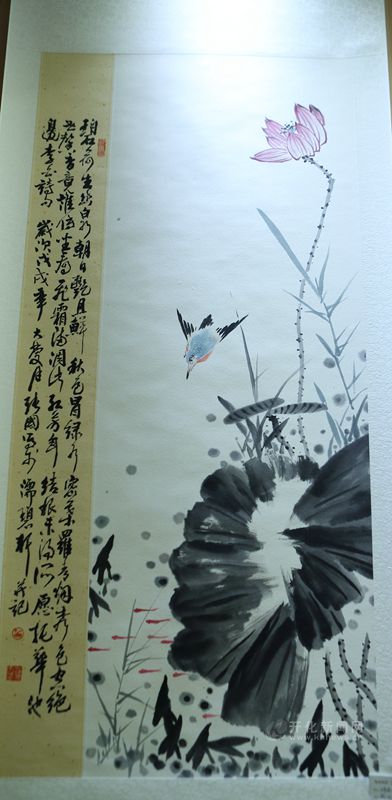 碧荷生幽泉朝日艷且鮮秋花冒綠水密葉羅青烟秀色空絕
世馨香竟誰傳坐看飛霜滿凋此紅芳年結根未得所願托華池
邊李白詩句歲次戊戌年大夏月張國
开化新闻网